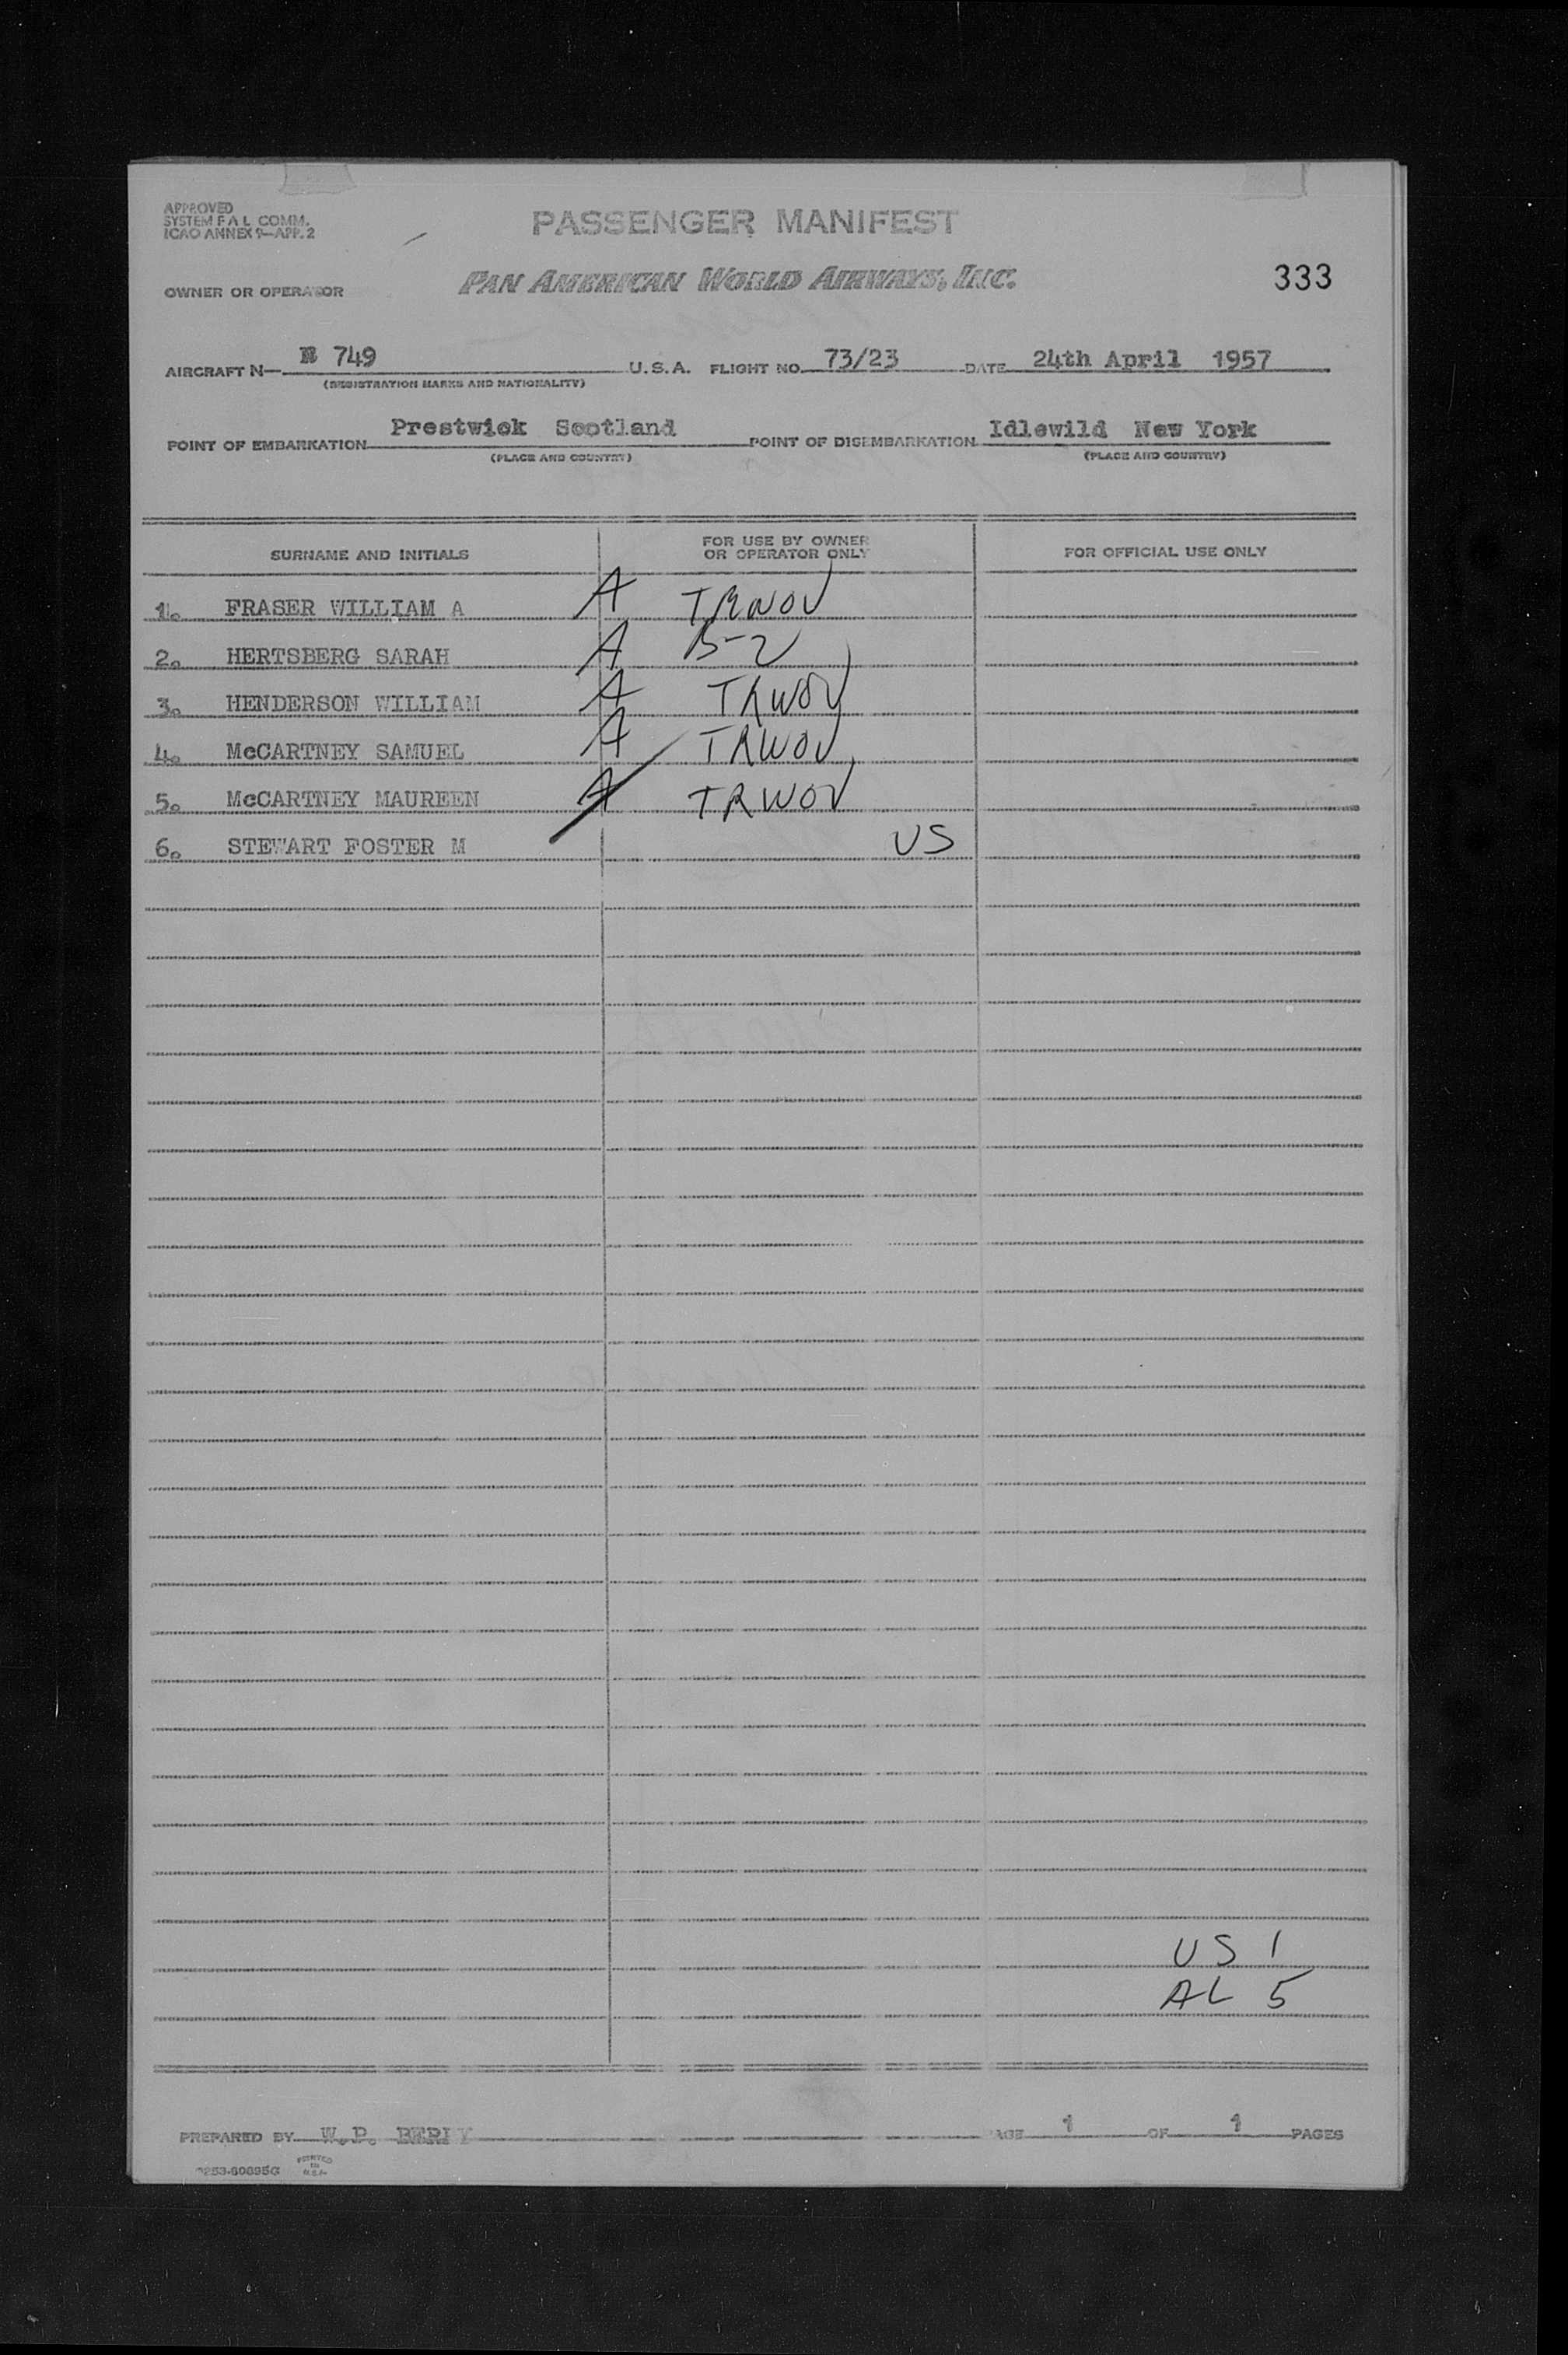 APPROVED
SYSTEM F A L COMM.
ICAO ANNEX 9—APP. 2
PASSENGER MANIFEST
OWNER OR OPERATOR
PAN AMERICAN WORLD AIRWAYS, INC.
333
AIRCRAFT N— N 749 U.S.A. FLIGHT NO. 73/23 DATE 24th April 1957
(REGISTRATION MARKS AND NATIONALITY)
POINT OF EMBARKATION Prestwick Scotland POINT OF DISEMBARKATION Idlewild New York
(PLACE AND COUNTRY) (PLACE AND COUNTRY)
SURNAME AND INITIALS FOR USE BY OWNER OR OPERATOR ONLY FOR OFFICIAL USE ONLY
1. FRASER WILLIAM A A TRWOV
2. HERTSBERG SARAH A B-2
3. HENDERSON WILLIAM A TRWOV
4. McCARTNEY SAMUEL A TRWOV
5. McCARTNEY MAUREEN A TRWOV
6. STEWART FOSTER M US
US 1
AL 5
PREPARED BY W.P. PAGE 1 OF 1 PAGES
PRINTED
IN
U.S.A.